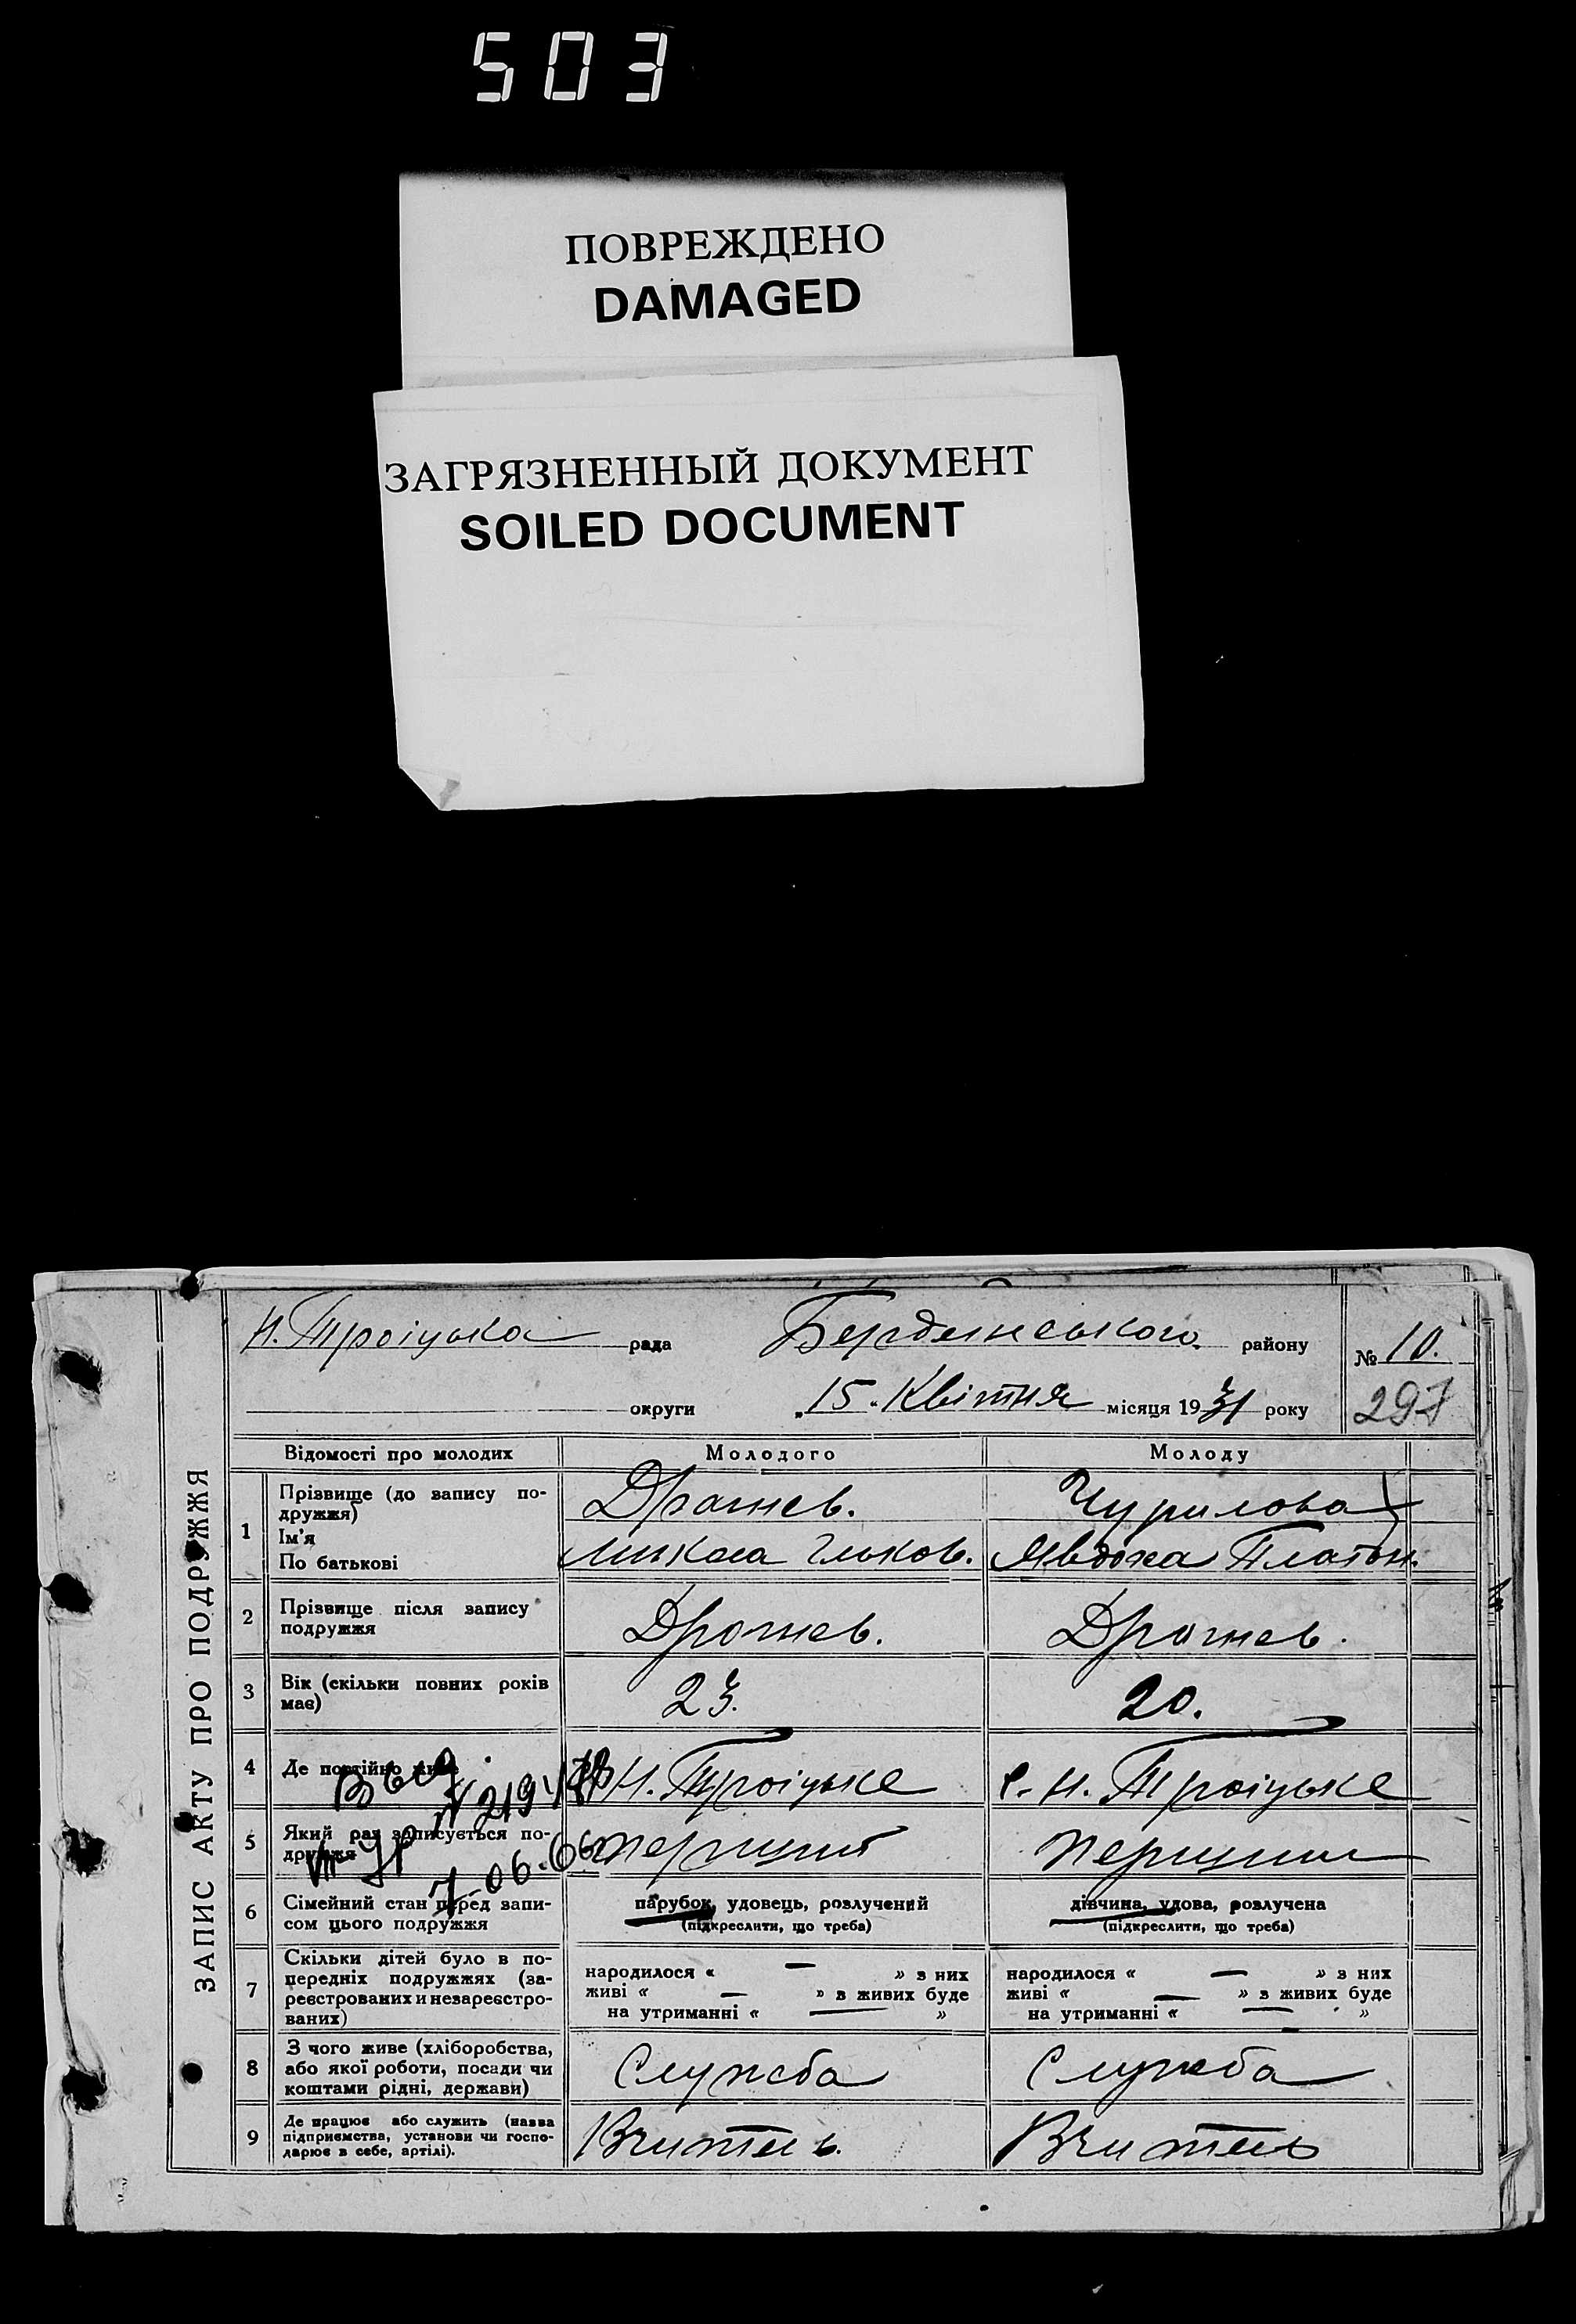 503
ПОВРЕЖДЕНО
DAMAGED
ЗАГРЯЗНЕННЫЙ ДОКУМЕНТ
SOILED DOCUMENT
ЗАПИС АКТУ ПРО ПОДРУЖЖЯ
Н. Троіцька рада Бердянського району № 10.
округи „15" Квітня місяця 1931 року 297
Відомості про молодих Молодого Молоду
1 Прізвище (до запису подружжя) Драгнев. Чурилова
Ім'я
По батькові Микола Ільков. Явдоха Платон.
2 Прізвище після запису подружжя Драгнев. Драгнев.
3 Вік (скільки повних років має) 23. 20.
4 Де постійно живе Н. Троіцьке с. Н. Троіцьке
5 Який раз записується подружжя перший перший
6 Сімейний стан перед записом цього подружжя парубок, удовець, розлучений дівчина, удова, розлучена
(підкреслити, що треба) (підкреслити, що треба)
7 Скільки дітей було в попередніх подружжях (зареєстрованих и незареєстрованих) народилося « — » з них народилося « — » з них
живі « — » з живих буде живі « — » з живих буде
на утриманні « — » на утриманні « — »
8 З чого живе (хліборобства, або якої роботи, посади чи коштами рідні, держави) Служба Служба
9 Де працює або служить (назва підприємства, установи чи господарює в себе, артілі). Вчитель. Вчитель